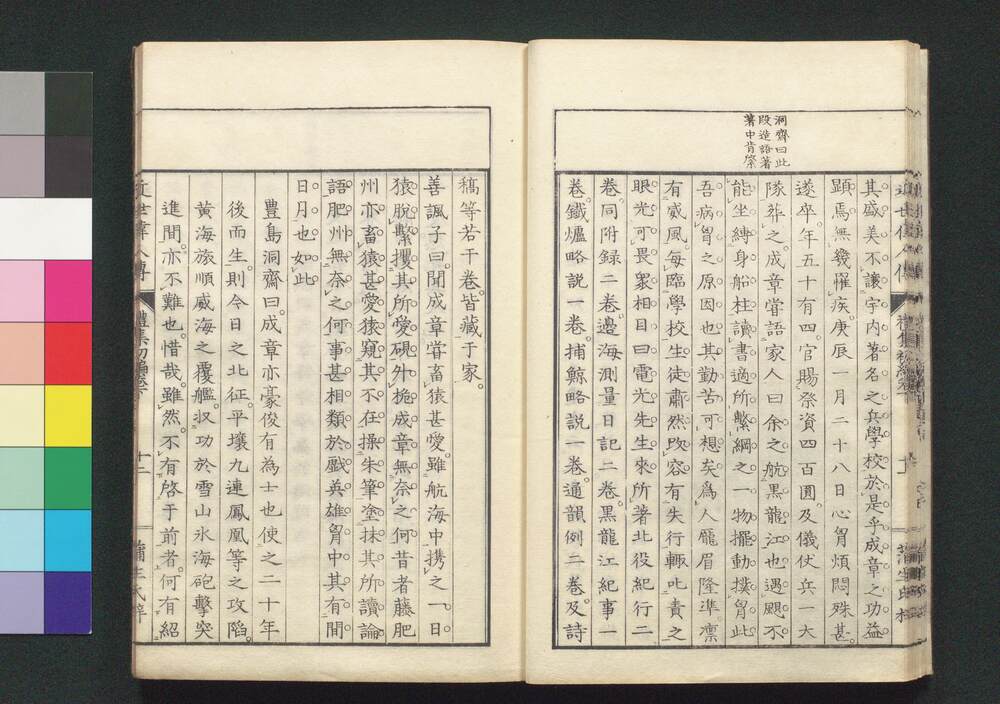 洞齋曰此
段造語著
著中肯綮
其盛美不讓宇内著名之兵學校於是乎成章之功益
顕焉無幾罹疾庚辰一月二十八日心胷煩悶殊甚
遂卒年五十有四官賜祭資四百圓及儀仗兵一大
隊葬之成章嘗語家人曰余之航黒龍江也遇颶不
能坐縛身船柱讀書適所繋綱之一物擺動撲胷此
吾病胷之原因也其勤苦可想矣爲人厖眉隆準凛
有威風毎臨學校生徒肅然改容有失行輙叱責之
眼光可畏衆相目曰電光先生來所著北役紀行二
巻同附録二巻邊海測量日記二巻黒龍江紀事一
巻鐵爐略説一巻捕鯨略説一巻通韻例二巻及詩
稿等若干巻皆藏于家
善諷子曰聞成章嘗畜猿甚愛雖航海中携之一日
猿脱繋攫其所愛硯外抛成章無奈之何昔者藤肥
州亦畜猿甚愛猿窺其不在操朱筆塗抹其所讀論
語肥州無奈之何事甚相類於戲英雄胷中其有間
日月也如此
豊島洞齋曰成章亦豪俊有為士也使之二十年
後而生則今日之北征平壤九連鳳凰等之攻陥
黄海旅順威海之覆艦収功於雪山氷海砲撃突
進間亦不難也惜哉雖然不有啓于前者何有紹
近世偉人傳
禮集初編巻下
十二
蒲生氏梓